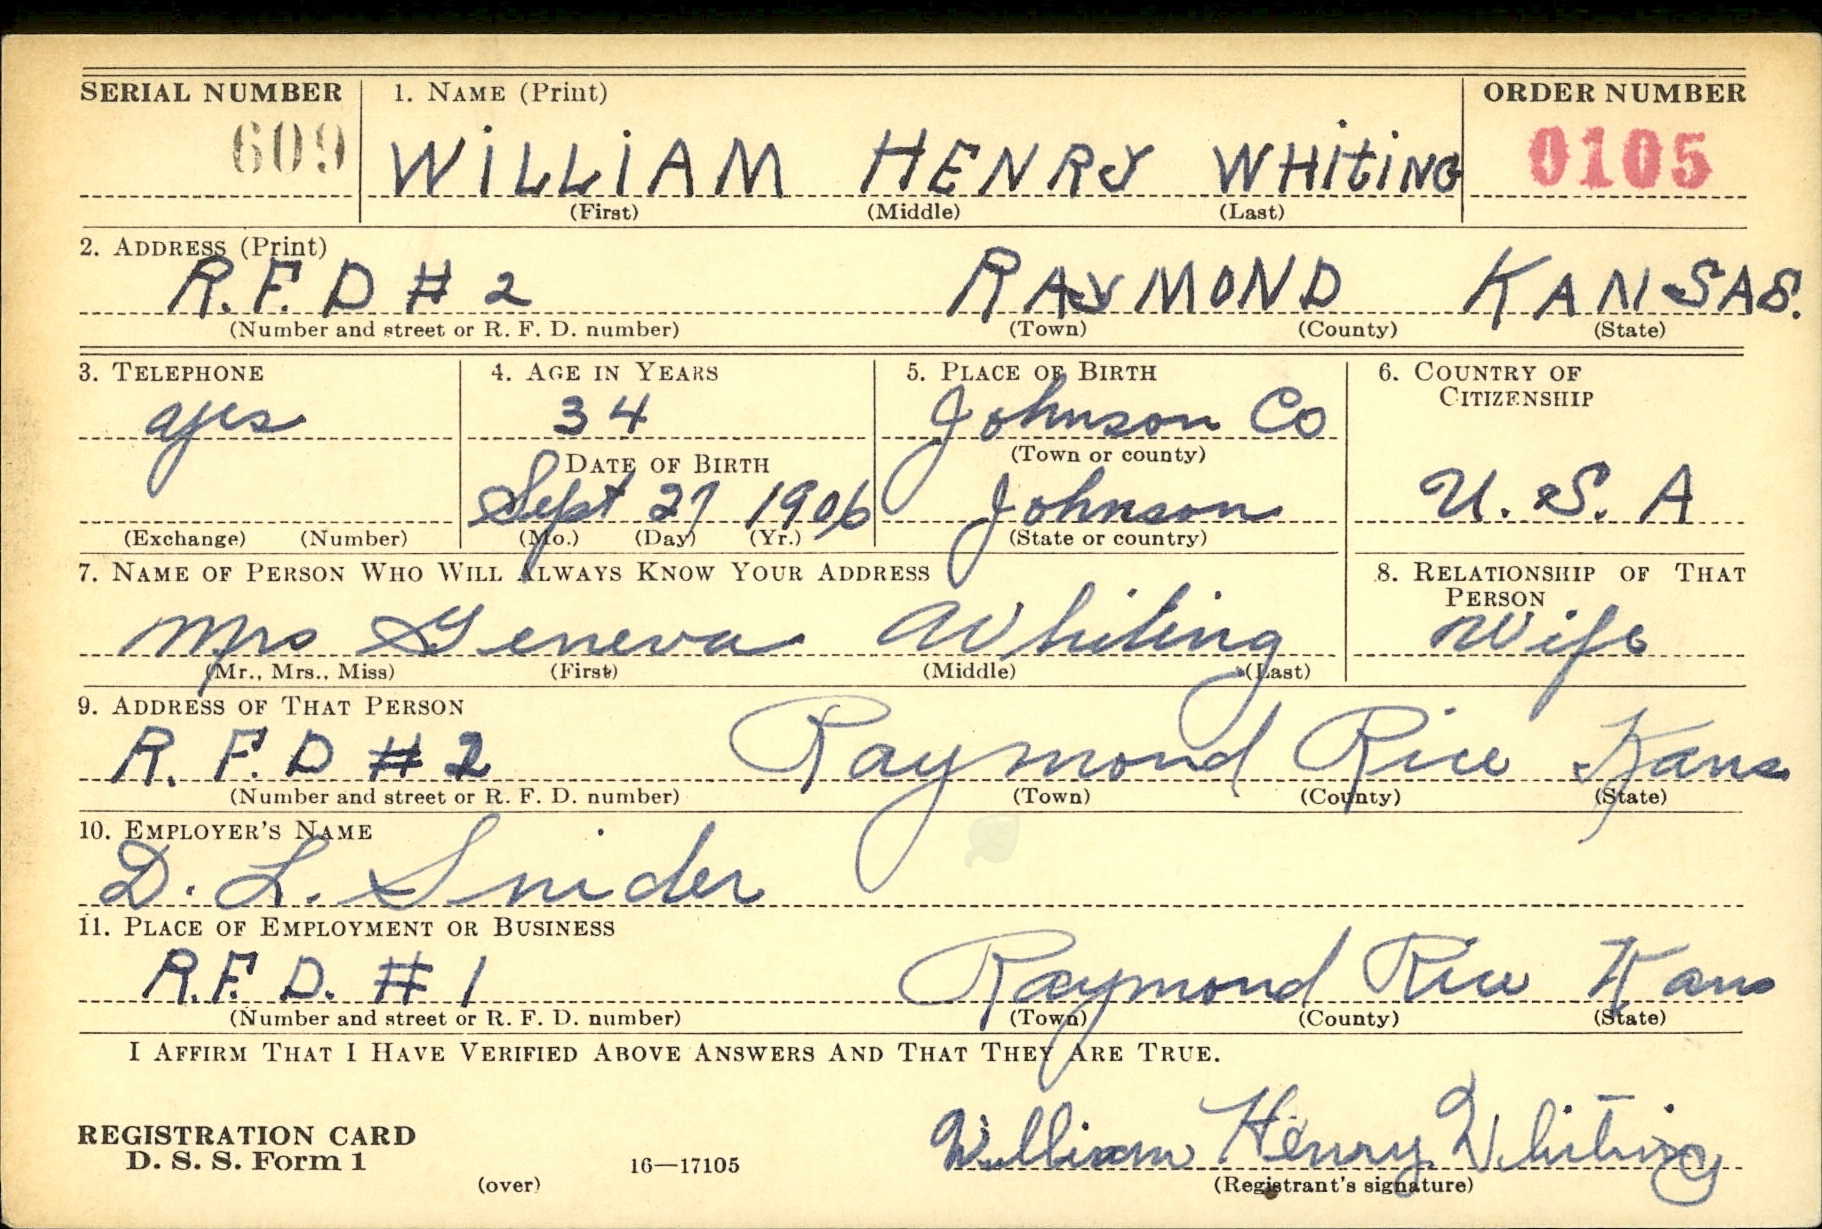 SERIAL NUMBER 1. NAME (Print) ORDER NUMBER
609 WILLIAM HENRY WHITING 0105
(First) (Middle) (Last)
2. ADDRESS (Print)
R.F.D # 2 RAYMOND KANSAS.
(Number and street or R. F. D. number) (Town) (County) (State)
3. TELEPHONE 4. AGE IN YEARS 5. PLACE OF BIRTH 6. COUNTRY OF
CITIZENSHIP
yes 34 Johnson Co
DATE OF BIRTH (Town or county)
Sept 27 1906 Johnson U.S.A
(Exchange) (Number) (Mo.) (Day) (Yr.) (State or country)
7. NAME OF PERSON WHO WILL ALWAYS KNOW YOUR ADDRESS 8. RELATIONSHIP OF THAT
PERSON
Mrs Geneva Whiting Wife
(Mr., Mrs., Miss) (First) (Middle) (Last)
9. ADDRESS OF THAT PERSON
R. F. D # 2 Raymond Rice Kans
(Number and street or R. F. D. number) (Town) (County) (State)
10. EMPLOYER'S NAME
D. L. Snider
11. PLACE OF EMPLOYMENT OR BUSINESS
R.F. D. # 1 Raymond Rice Kans
(Number and street or R. F. D. number) (Town) (County) (State)
I AFFIRM THAT I HAVE VERIFIED ABOVE ANSWERS AND THAT THEY ARE TRUE.
REGISTRATION CARD
D. S. S. Form 1 16—17105 William Henry Whiting
(over) (Registrant's signature)